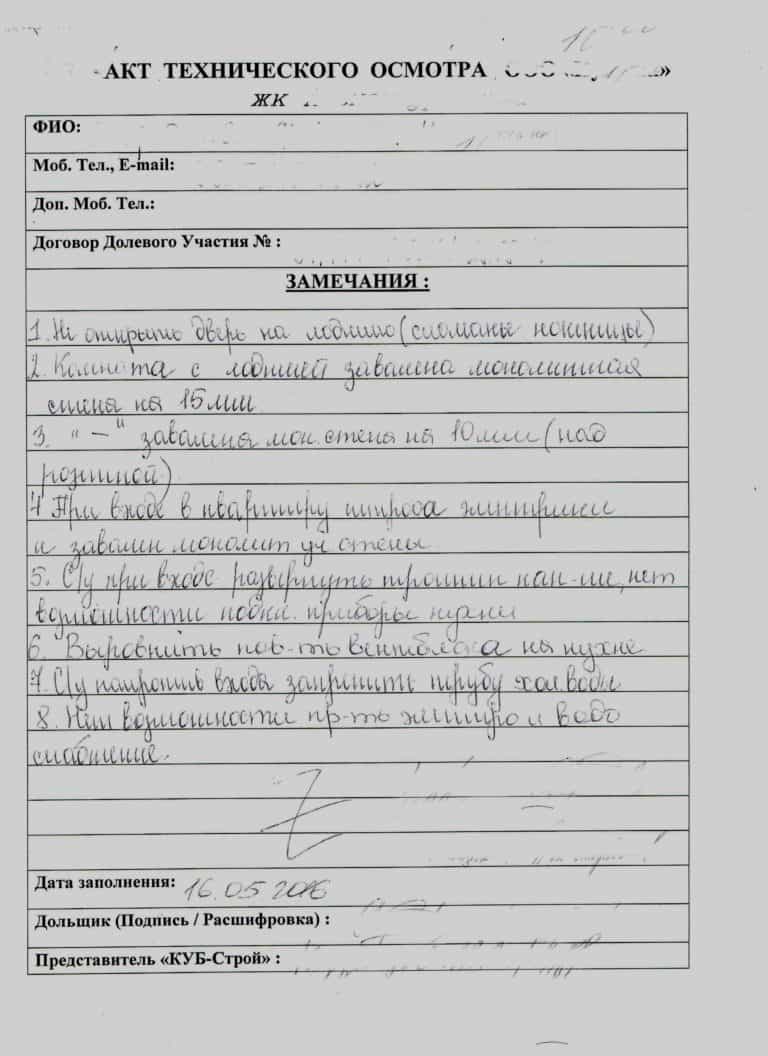 АКТ ТЕХНИЧЕСКОГО ОСМОТРА
ЖК
ФИО:
Моб. Тел., E-mail:
Доп. Моб. Тел.:
Договор Долевого Участия № :
ЗАМЕЧАНИЯ :
1. Не открыть дверь на лоджию (сломаны ножницы)
2. Комната с лоджией завалена монолитная
стена на 15мм
3. "—" завалена мон. стена на 10мм (над
розеткой)
4 При входе в квартиру штроба электрики
и завален монолит уч стены
5. С/у при входе развернуть тройник кан-ии, нет
возможности подкл. приборы кухни
6. Выровнить пов-ть вентблока на кухне
7. С/у напротив входа закрепить трубу хол. воды
8. Нет возможности пр-ть электро и водо
снабжение.
Дата заполнения: 16.05 2016
Дольщик (Подпись / Расшифровка) :
Представитель «КУБ-Строй» :